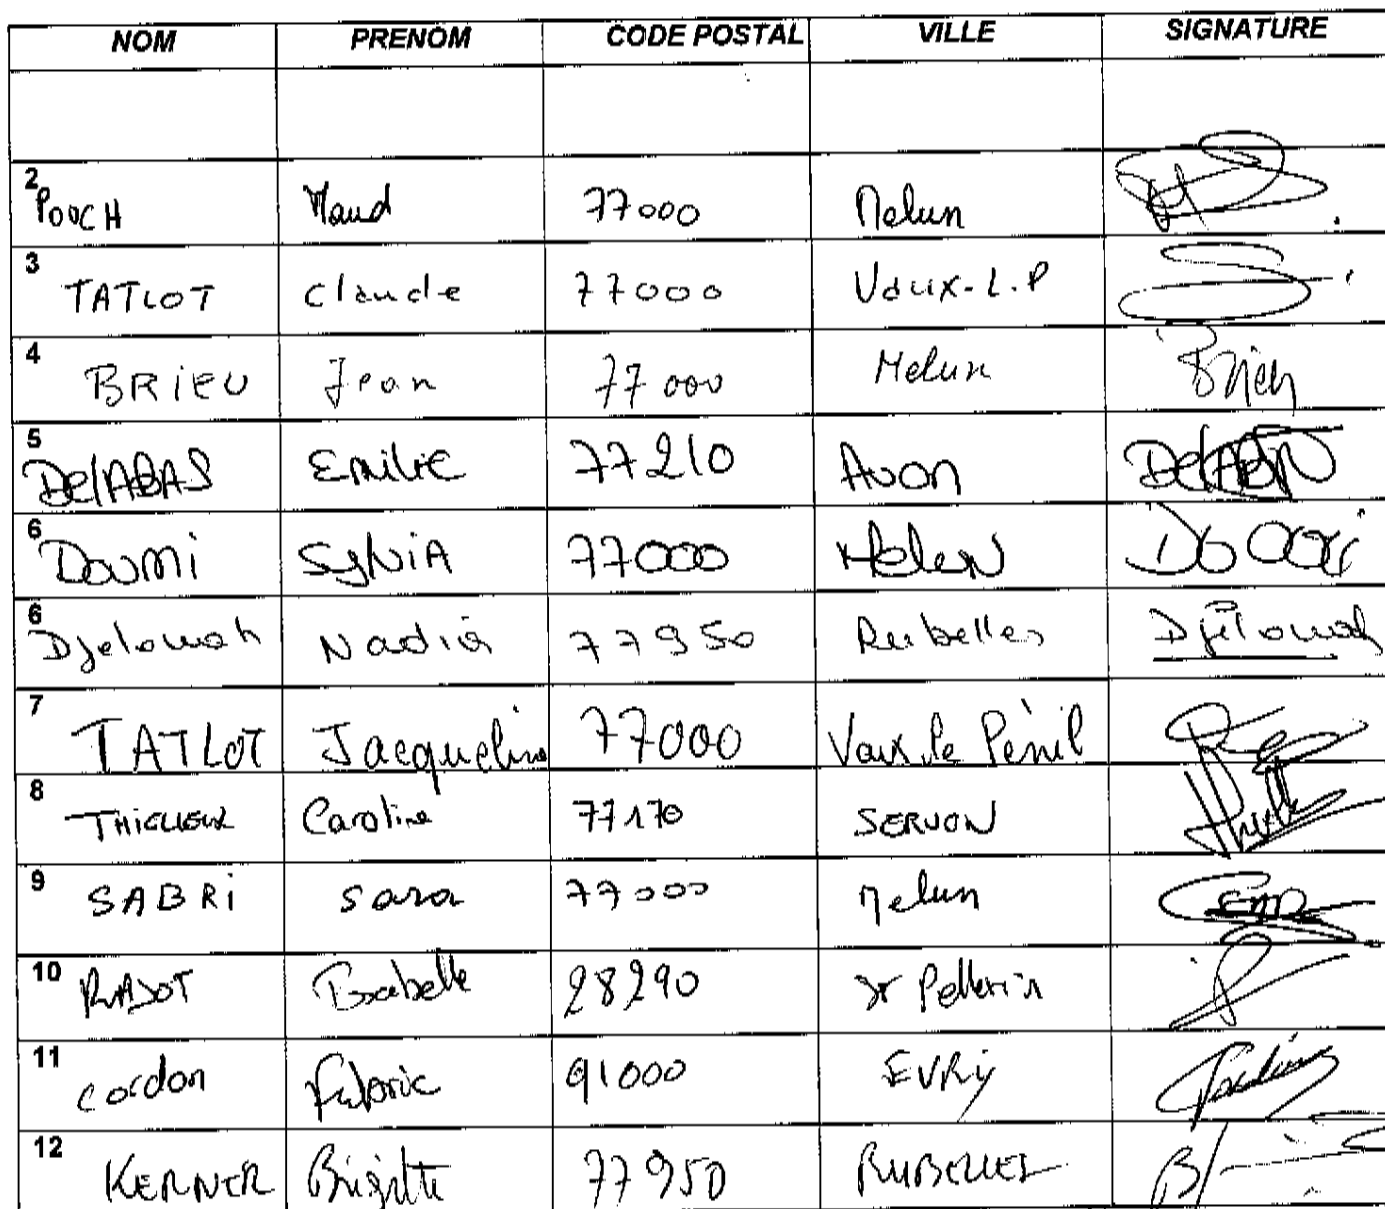 NOM PRENOM CODE POSTAL VILLE SIGNATURE
2 POOCH Maud 77000 Melun
3 TATLOT Claude 77000 Vaux-L.P
4 BRIEU Jean 77000 Melun Brieu
5 DelABAS Emilie 77210 Avon
6 Doumi SylviA 77000 Melun
6 Djelouah Nadia 77950 Rubelles Djelouah
7 TATLOT Jacqueline 77000 Vaux le Pénil
8 Caroline 77170 SERVON
9 SABRi Sara 77000 Melun
10 RADOT Isabelle 28290 St Pellerin
11 Cordon Fabric 91000 EVRY
12 KERNER Brigitte 77950 RUBELLES